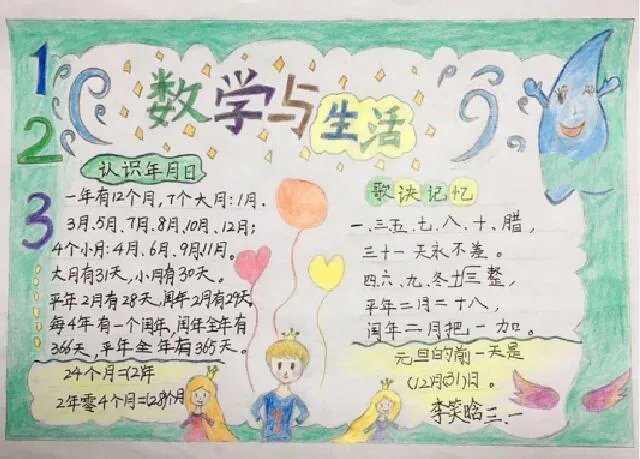 1
2
3
数学与生活
认识年月日
一年有12个月,7个大月:1月、
3月、5月、7月、8月、10月、12月;
4个小月:4月、6月、9月、11月。
大月有31天,小月有30天。
平年2月有28天,闰年2月有29天
每4年有一个闰年,闰年全年有
366天,平年全年有365天。
24个月=(2)年
2年零4个月=(28)个月
歌诀记忆
一、三五、七、八、十、腊,
三十一天永不差。
四、六、九、冬三十整,
平年二月二十八,
闰年二月把一加。
元旦的前一天是
(12)月(31)日。
李笑晗 三.一